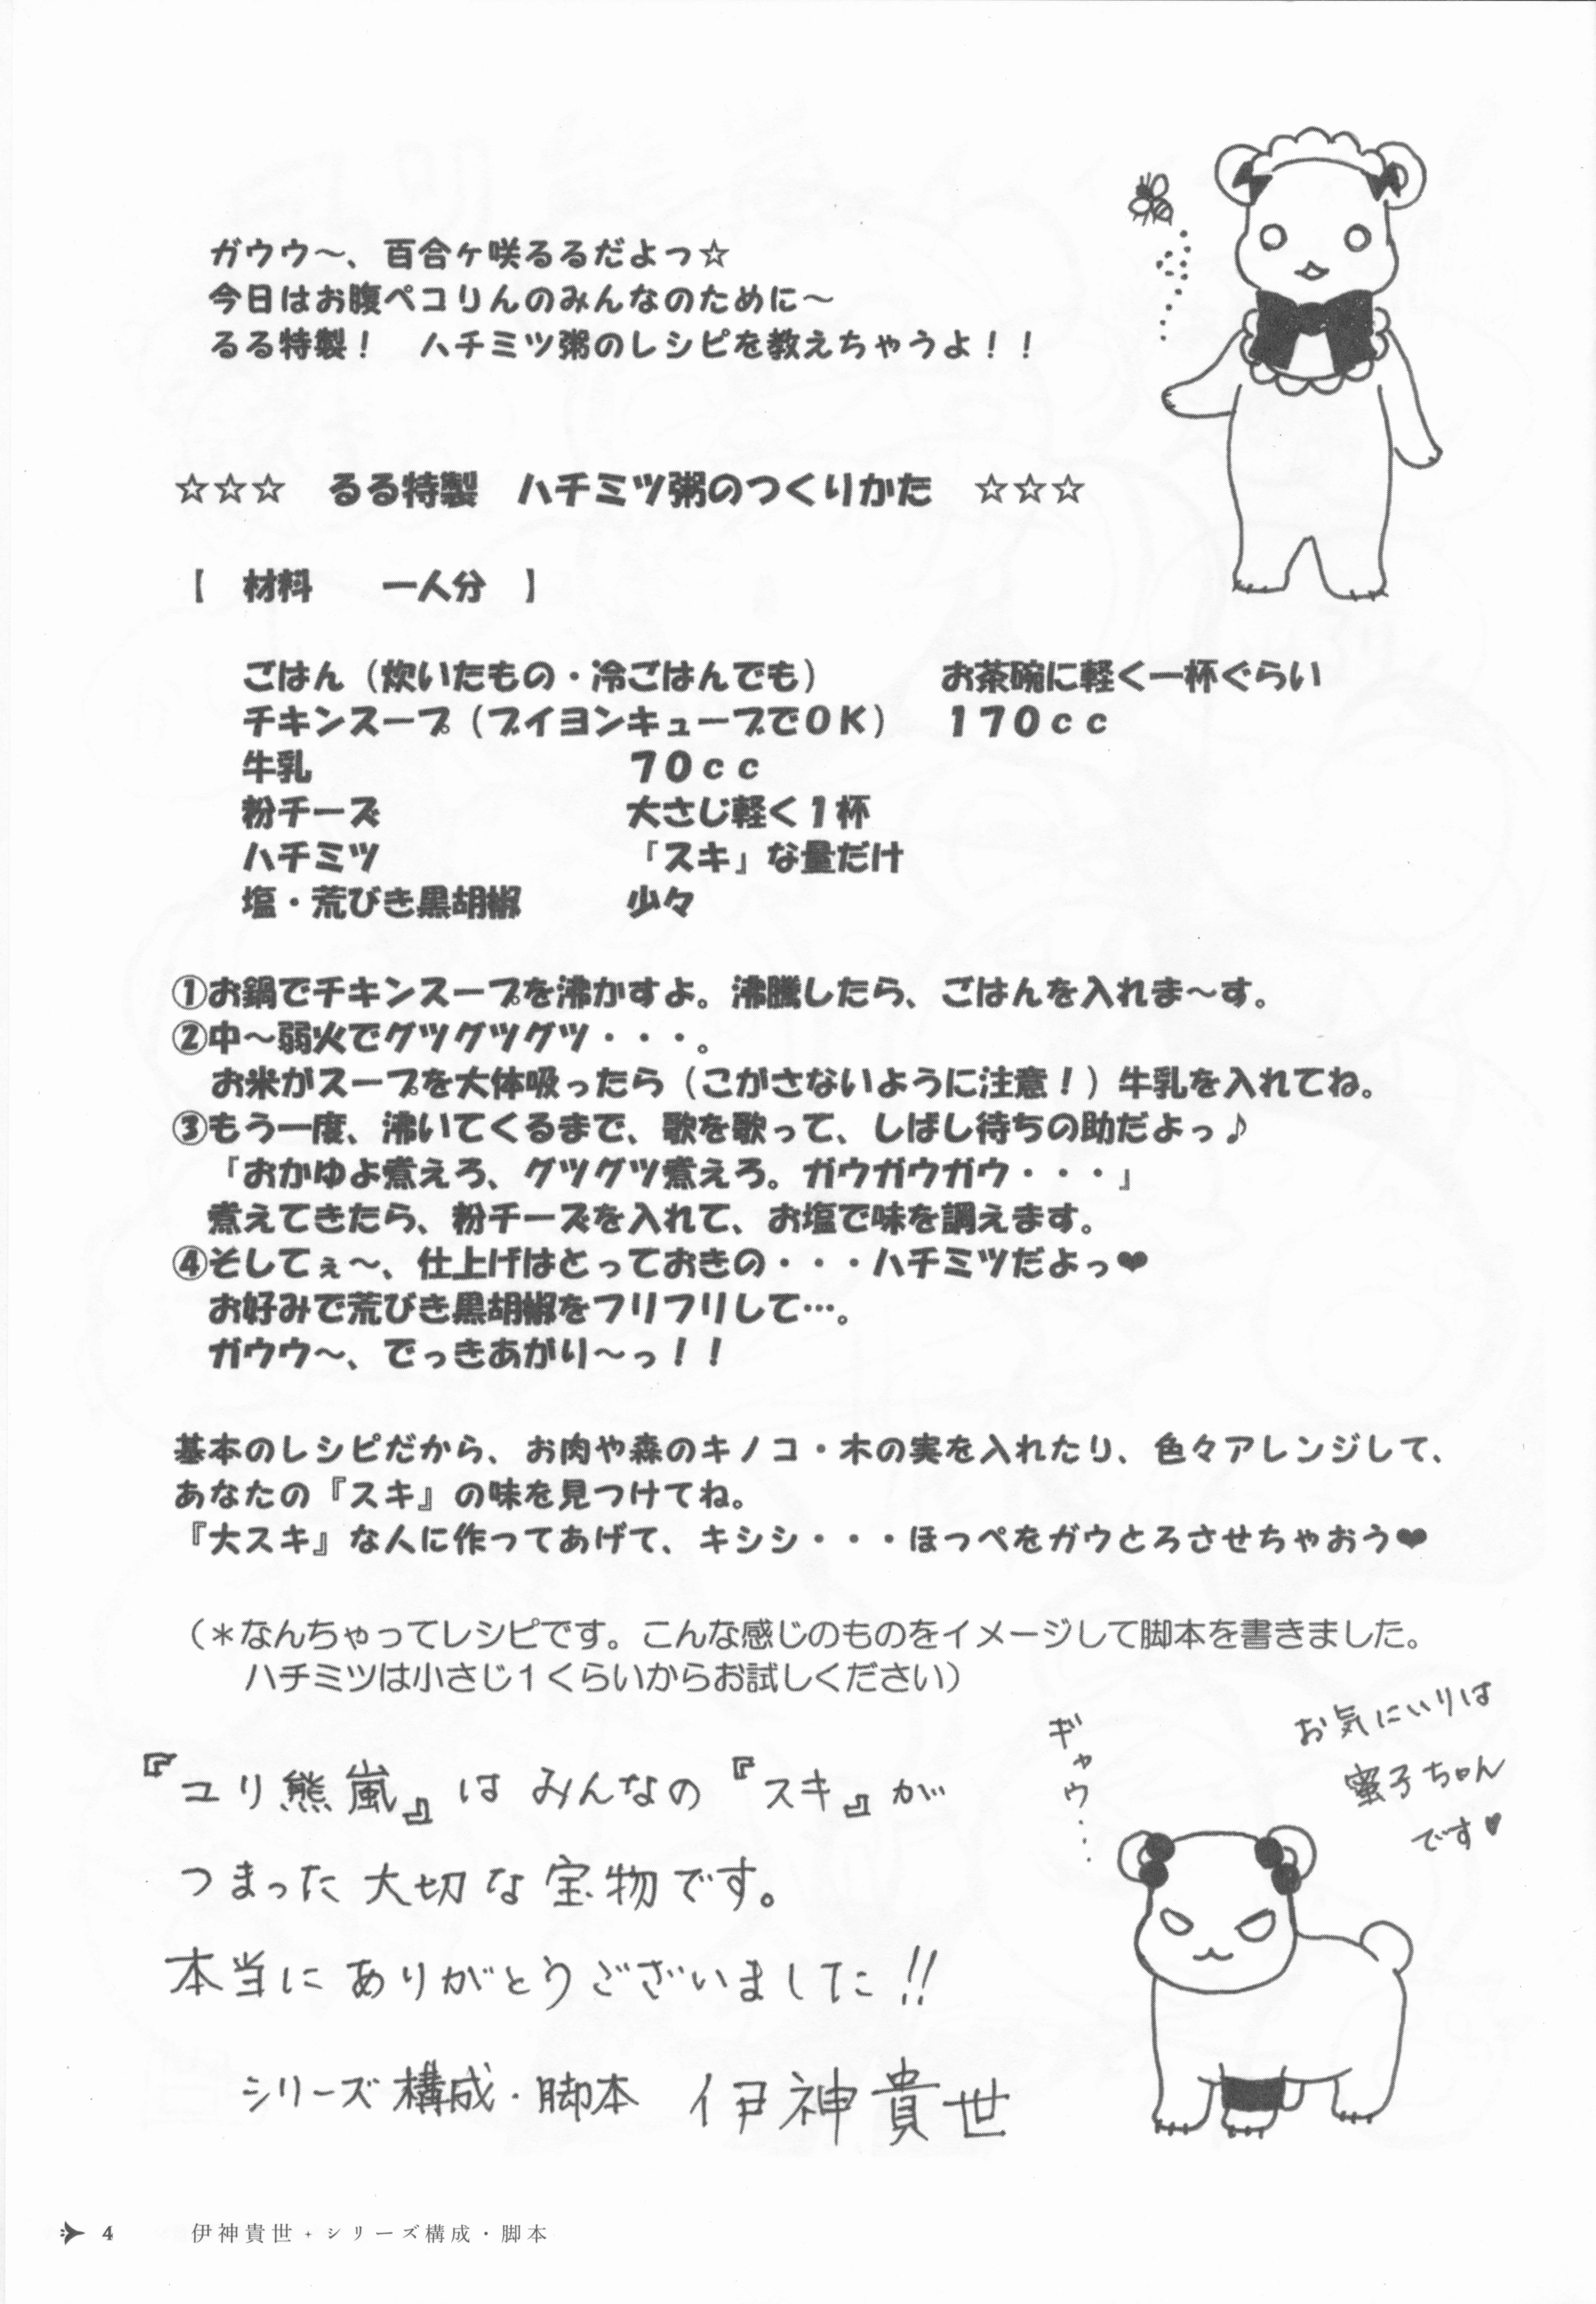 ガウウ～、百合ヶ咲るるだよっ☆
今日はお腹ペコりんのみんなのために～
るる特製！　ハチミツ粥のレシピを教えちゃうよ！！
☆☆☆　るる特製　ハチミツ粥のつくりかた　☆☆☆
【　材料　　一人分　】
ごはん（炊いたもの・冷ごはんでも）　　　お茶碗に軽く一杯ぐらい
チキンスープ（ブイヨンキューブでＯＫ）　１７０ｃｃ
牛乳　　　　　　　　　７０ｃｃ
粉チーズ　　　　　　　大さじ軽く１杯
ハチミツ　　　　　　　「スキ」な量だけ
塩・荒びき黒胡椒　　　少々
①お鍋でチキンスープを沸かすよ。沸騰したら、ごはんを入れま～す。
②中～弱火でグツグツグツ・・・。
お米がスープを大体吸ったら（こがさないように注意！）牛乳を入れてね。
③もう一度、沸いてくるまで、歌を歌って、しばし待ちの助だよっ♪
「おかゆよ煮えろ、グツグツ煮えろ。ガウガウガウ・・・」
煮えてきたら、粉チーズを入れて、お塩で味を調えます。
④そしてぇ～、仕上げはとっておきの・・・ハチミツだよっ❤
お好みで荒びき黒胡椒をフリフリして…。
ガウウ～、でっきあがり～っ！！
基本のレシピだから、お肉や森のキノコ・木の実を入れたり、色々アレンジして、
あなたの『スキ』の味を見つけてね。
『大スキ』な人に作ってあげて、キシシ・・・ほっぺをガウとろさせちゃおう❤
（＊なんちゃってレシピです。こんな感じのものをイメージして脚本を書きました。
ハチミツは小さじ１くらいからお試しください）
お気にいりは
蜜子ちゃん
です♥
ギャウ・・・
『ユリ熊嵐』は みんなの『スキ』が
つまった 大切な宝物です。
本当に ありがとうございました!!
シリーズ構成・脚本　伊神貴世
4　伊神貴世＋シリーズ構成・脚本